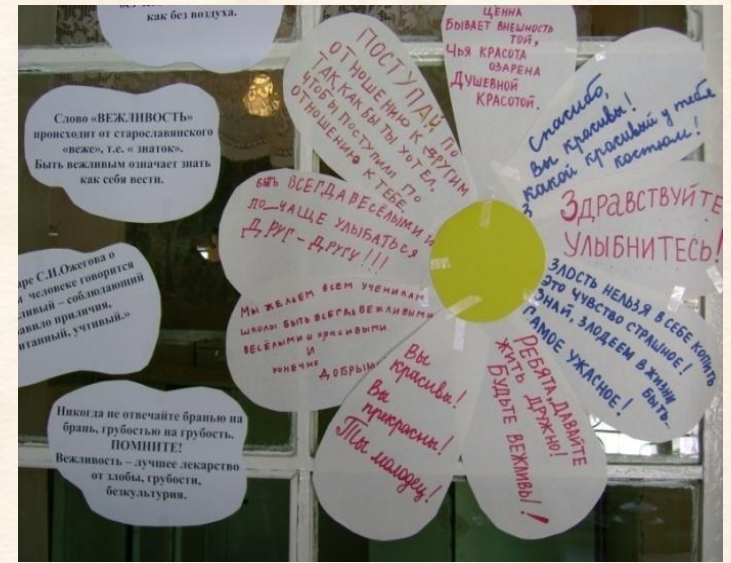 как без воздуха.
Слово «ВЕЖЛИВОСТЬ»
происходит от старославянского
«веже», т.е. « знаток».
Быть вежливым означает знать
как себя вести.
ре С.И.Ожегова о
человеке говорится
ливый – соблюдающий
авило приличия,
итанный, учтивый.»
Никогда не отвечайте бранью на
брань, грубостью на грубость.
ПОМНИТЕ!
Вежливость – лучшее лекарство
от злобы, грубости,
бескультурия.
ЦЕННА
БЫВАЕТ ВНЕШНОСТЬ
ТОЙ,
ЧЬЯ КРАСОТА
ОЗАРЕНА
ДУШЕВНОЙ
КРАСОТОЙ.
Спасибо,
Вы красивы!
Какой красивый у тебя
костюм!
ЗДРАВСТВУЙТЕ
УЛЫБНИТЕСЬ!
ЗЛОСТЬ НЕЛЬЗЯ В СЕБЕ КОПИТЬ
ЭТО ЧУВСТВО СТРАШНОЕ!
ЗНАЙ, ЗЛОДЕЕМ В ЖИЗНИ БЫТЬ-
САМОЕ УЖАСНОЕ!
РЕБЯТА, ДАВАЙТЕ
ЖИТЬ ДРУЖНО!
БУДЬТЕ ВЕЖЛИВЫ!!
Вы
красивы!
Вы
прекрасны!
Ты молодец!
МЫ ЖЕЛАЕМ ВСЕМ УЧЕНИКАМ
ШКОЛЫ БЫТЬ ВСЕГДА ВЕЖЛИВЫМИ
ВЕСЁЛЫМИ И КРАСИВЫМИ
И
КОНЕЧНО ДОБРЫМИ
БЫТЬ ВСЕГДА ВЕСЁЛЫМИ И
ПО_ЧАЩЕ УЛЫБАТЬСЯ
ДРУГ-ДРУГУ!!!
ПОСТУПАЙ ПО
ОТНОШЕНИЮ К ДРУГИМ
ТАК, КАК БЫ ТЫ ХОТЕЛ,
ЧТОБЫ ПОСТУПИЛИ ПО
ОТНОШЕНИЮ К ТЕБЕ